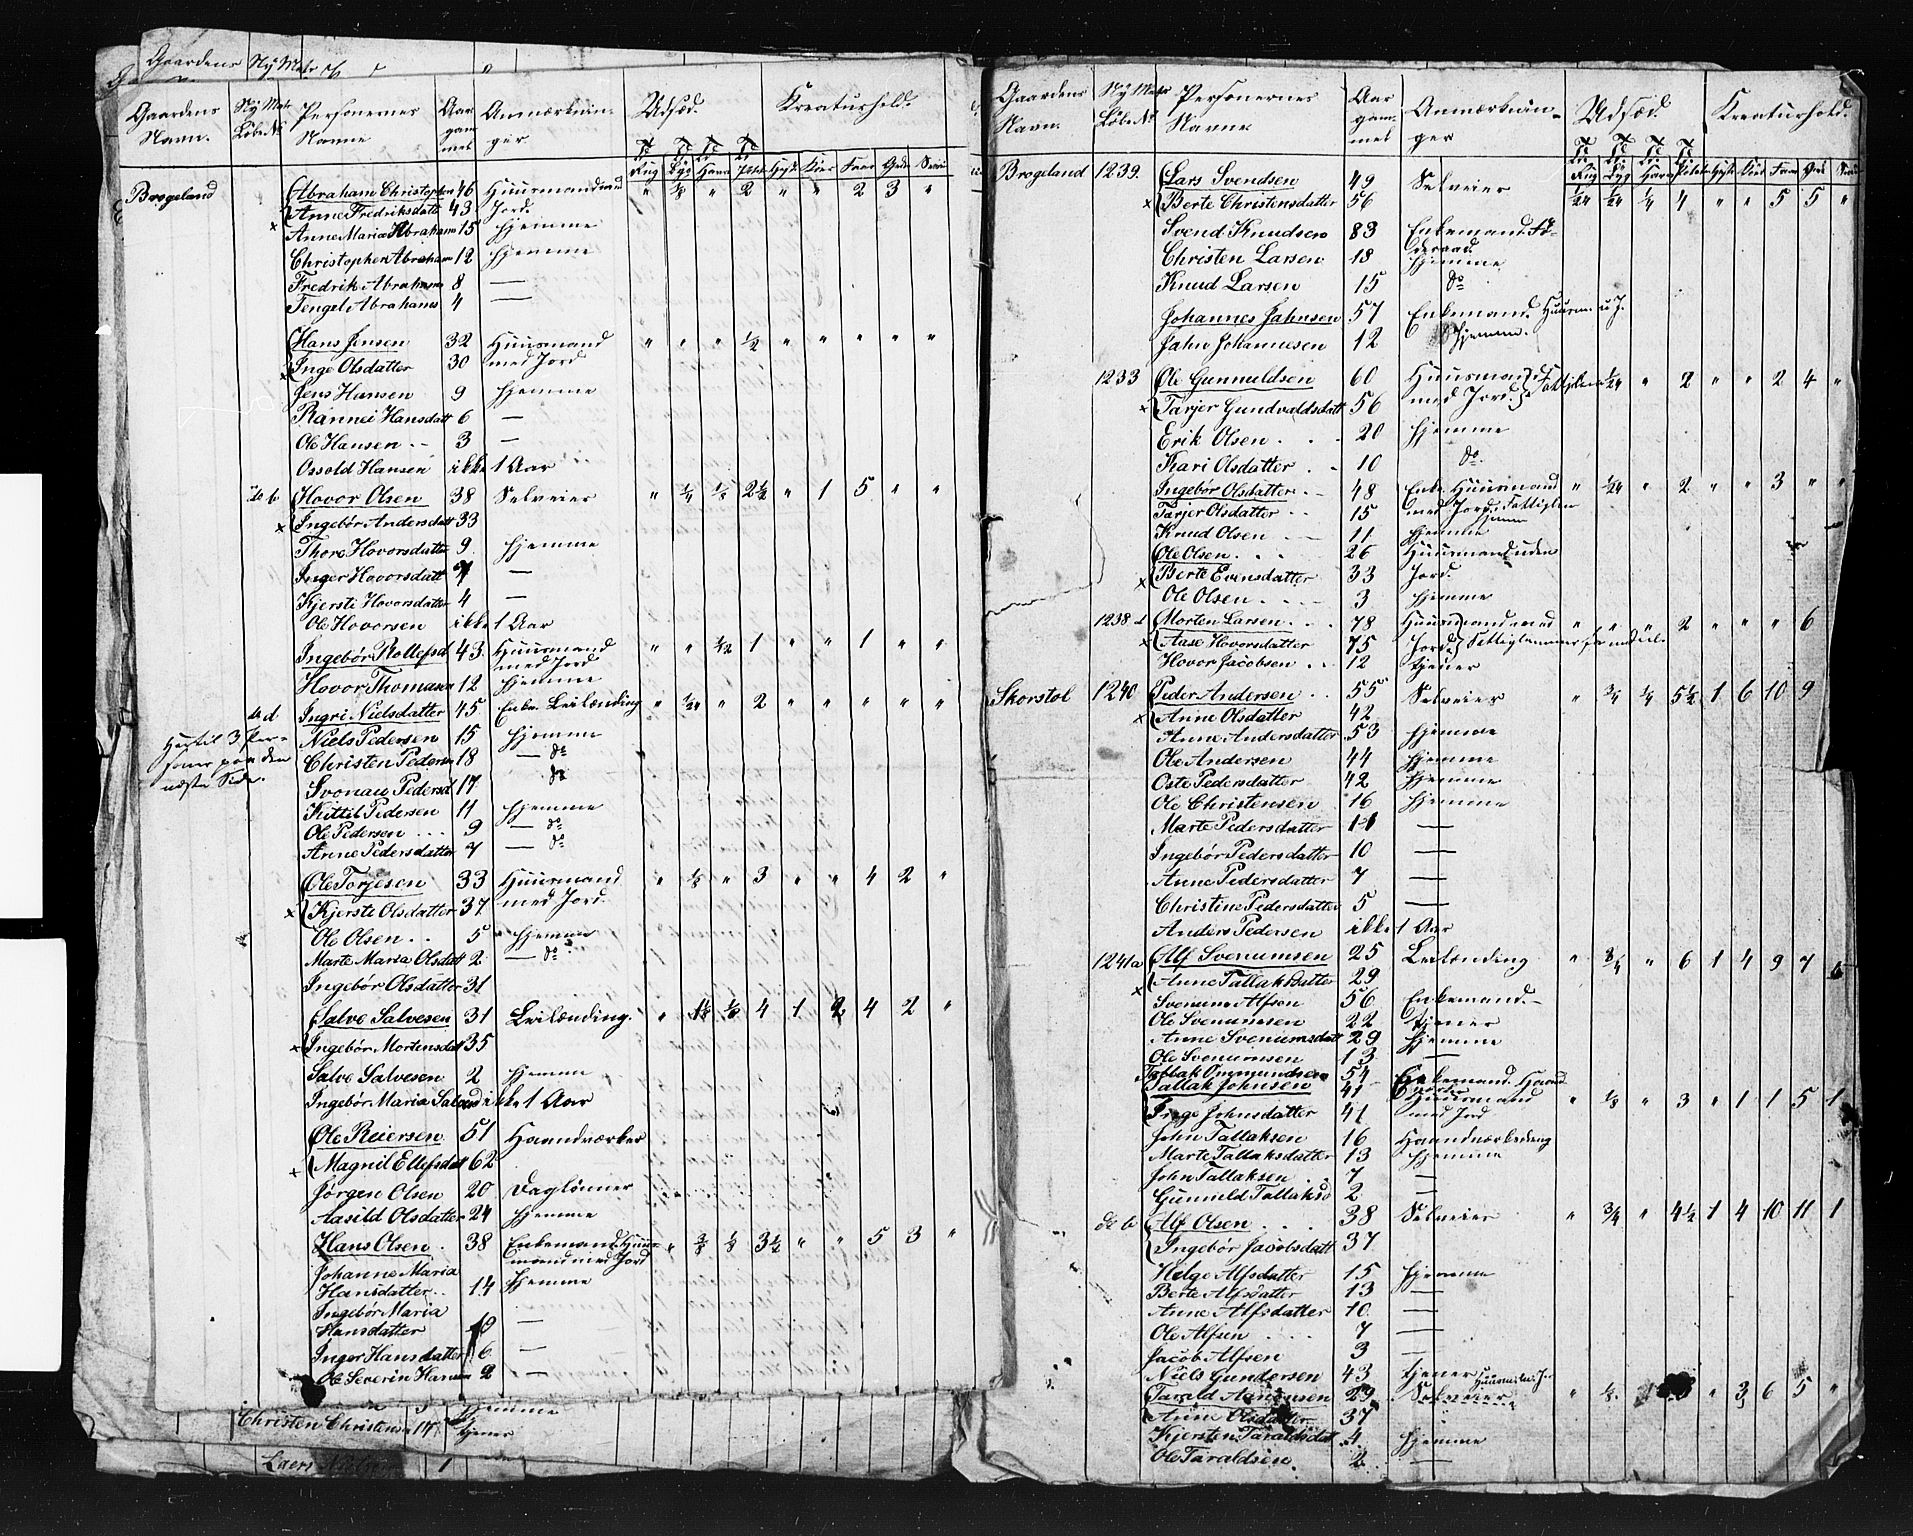 Gaardens Ny Matr
Gaardens Navn. Ny Matr Løbe № Personernes Navne Aar gammel Anmærkninger Udsæd. Kreaturhold.
Rug Byg Havre Potet Heste Kiør Faar Geder Sviin
Brøgeland Abraham Christophers 46 Huusmand med " 1/8 " 2 " " 2 3 "
x Anne Fredriksdatt 43 Jord.
Anne Maria Abraham 15 hjemme
Christopher Abraham 12 hjemme
Fredrik Abrahams 8 —
Tengel Abrahams 4 —
Hans Jensen 32 Huusmand " " " 1/2 " " " " "
x Inge Olsdatter 30 med Jord
Jens Hansen 9 hjemme
Rannei Hansdatt 6 —
Ole Hansen 3 —
Ossold Hansen ikke 1 Aar
do b Hovor Olsen 38 Selveier " 1/4 1/2 2 1/2 " 1 5 " "
x Ingebør Andersdatt 33
Thore Hovorsdatter 9 hjemme
Inger Hovorsdatt 7 —
Kjersti Hovorsdatter 4 —
Ole Hovorsen ikke 1 Aar
Ingebør Rollefsd 43 Huusmand " " 1/12 1 " " 1 " "
med Jord
Hovor Thomasen 12 hjemme
do d Ingri Nielsdatter 45 Enke. Leilænding " 1/24 " 2 " " " " "
Hertil 3 Personer paa den næste Side. Niels Pedersen 15 hjemme
Christen Peders 18 — do
Svonau Pedersd 17 do
Kittil Pedersen 11 hjemme
Ole Pedersen 9 — do
Anne Pedersdatter 7 — do
Ole Torjesen 33 Huusmand " 1/8 " 3 " " 4 2 "
x Kjerste Olsdatter 37 med Jord.
Ole Olsen 5 hjemme
Marte Maria Olsdatt 2 — do
Ingebør Olsdatter 31
Salve Salvesen 31 Leilænding. " 1/8 4 1 2 4 2 "
x Ingebør Mortensdatt 35
Salve Salvesen 2 hjemme
Ingebør Maria Salvesd ikke 1 Aar
Ole Reiersen 51 Haandværker
x Magnil Ellefsdatt 62
Jørgen Olsen 20 Daglønner
Aasild Olsdatter 24 hjemme
Hans Olsen 38 Enkemand Huus- " 3/8 1/8 3 1/2 " " 5 3 "
mand med Jord
Johanne Maria
Hansdatter 14 hjemme
Ingebør Maria
Hansdatter —
Inger Hansdatter 6 —
Ole Severin Hansen 2 —
hjemme
Christen Christens 14 tjener
Gaardens Navn. Ny Matr Løbe № Personernes Navne Aar gammel Anmærkninger Udsæd. Kreaturhold.
Rug Byg Havre Potet Heste Kiør Faar Geder Sviin
Brøgeland 1239. Lars Svendsen 49 Selveier 1/24 1/24 1/4 4 " " 5 5 "
x Berte Christensdatter 56
Svend Knudsen 83 Enkemand Fø-
deraad.
Christen Larsen 18 hjemme
Knud Larsen 15 do
Johannes Jahnsen 57 Enkemand. Huusm. u J.
Jahn Johannesen 12 hjemme.
1233 Ole Gunnuldsen 60 Huusmand 1/24 " 2 " " 2 4 "
med Jord
x Tarjer Gundvaldsdatt 56
Erik Olsen 20 hjemme
Kari Olsdatter 10 do.
Ingebør Olsdatter 48 Enke. Huusmand " 1/24 " 2 " " 3 " "
Tarjer Olsdatter 15 med Jord. Fattiglem
hjemme
Knud Olsen 11 hjemme
Ole Olsen 26 Huusmand uden
x Berte Evensdatter 33 Jord.
Ole Olsen 3 hjemme
1238 d Morten Larsen 78 Huusmand med " " " 2 " " " 6
x Aase Hovorsdatter 75 Jord. Fattiglemmer
Hovor Jacobsen 12 tjener
Skorstøl 1240 Peder Andersen 55 Selveier " 3/4 1/4 5 1/2 1 6 10 9
x Anne Olsdatter 42
Anne Andersdatter 53 hjemme
Ole Andersen 44 hjemme
Oste Pedersdatter 42 hjemme
Ole Christensen 16 hjemme
Marte Pedersdatter 11 —
Ingebør Pedersdatter 10 —
Anne Pedersdatter 7 —
Christine Pedersdatter 5 —
Anders Pedersen ikke 1 Aar
1241a Alf Svenumsen 25 Leilænding " 3/4 " 6 1 4 9 7
x Anne Tallaksdatter 29
Svenum Alfsen 56 Enkemand.
Ole Svenumsen 22 tjener
Anne Svenumsdatt 29 hjemme
Ole Svenumsen 13 —
Tallak Ommundsen 54 Enkemand. Haand
værker
Tallak Johnsen 41 Huusmand " 1/8 " 3 " 1 1 5 1
Inge Johnsdatter 41 med Jord
John Tallaksen 16 Haandværksdreng
Marte Tallaksdatter 13 hjemme
John Tallaksen 7 —
Gunnuld Tallaksd 2 —
do b Alf Olsen 38 Selveier " 3/4 " 4 1/2 1 4 10 11 1
Ingebør Jacobsdatt 37
Helge Alfsdatter 15 hjemme
Berte Alfsdatter 13 —
Anne Alfsdatter 10 —
Ole Alfsen 7 —
Jacob Alfsen 3 —
Niels Gundersen 43 tjener
Tarald Aanensen 29 Selveier " 1/2 " 3 6 5 "
Anne Olsdatter 37
Kjersten Taraldsdatt 4 hjemme
Ole Taraldsen. 2 —